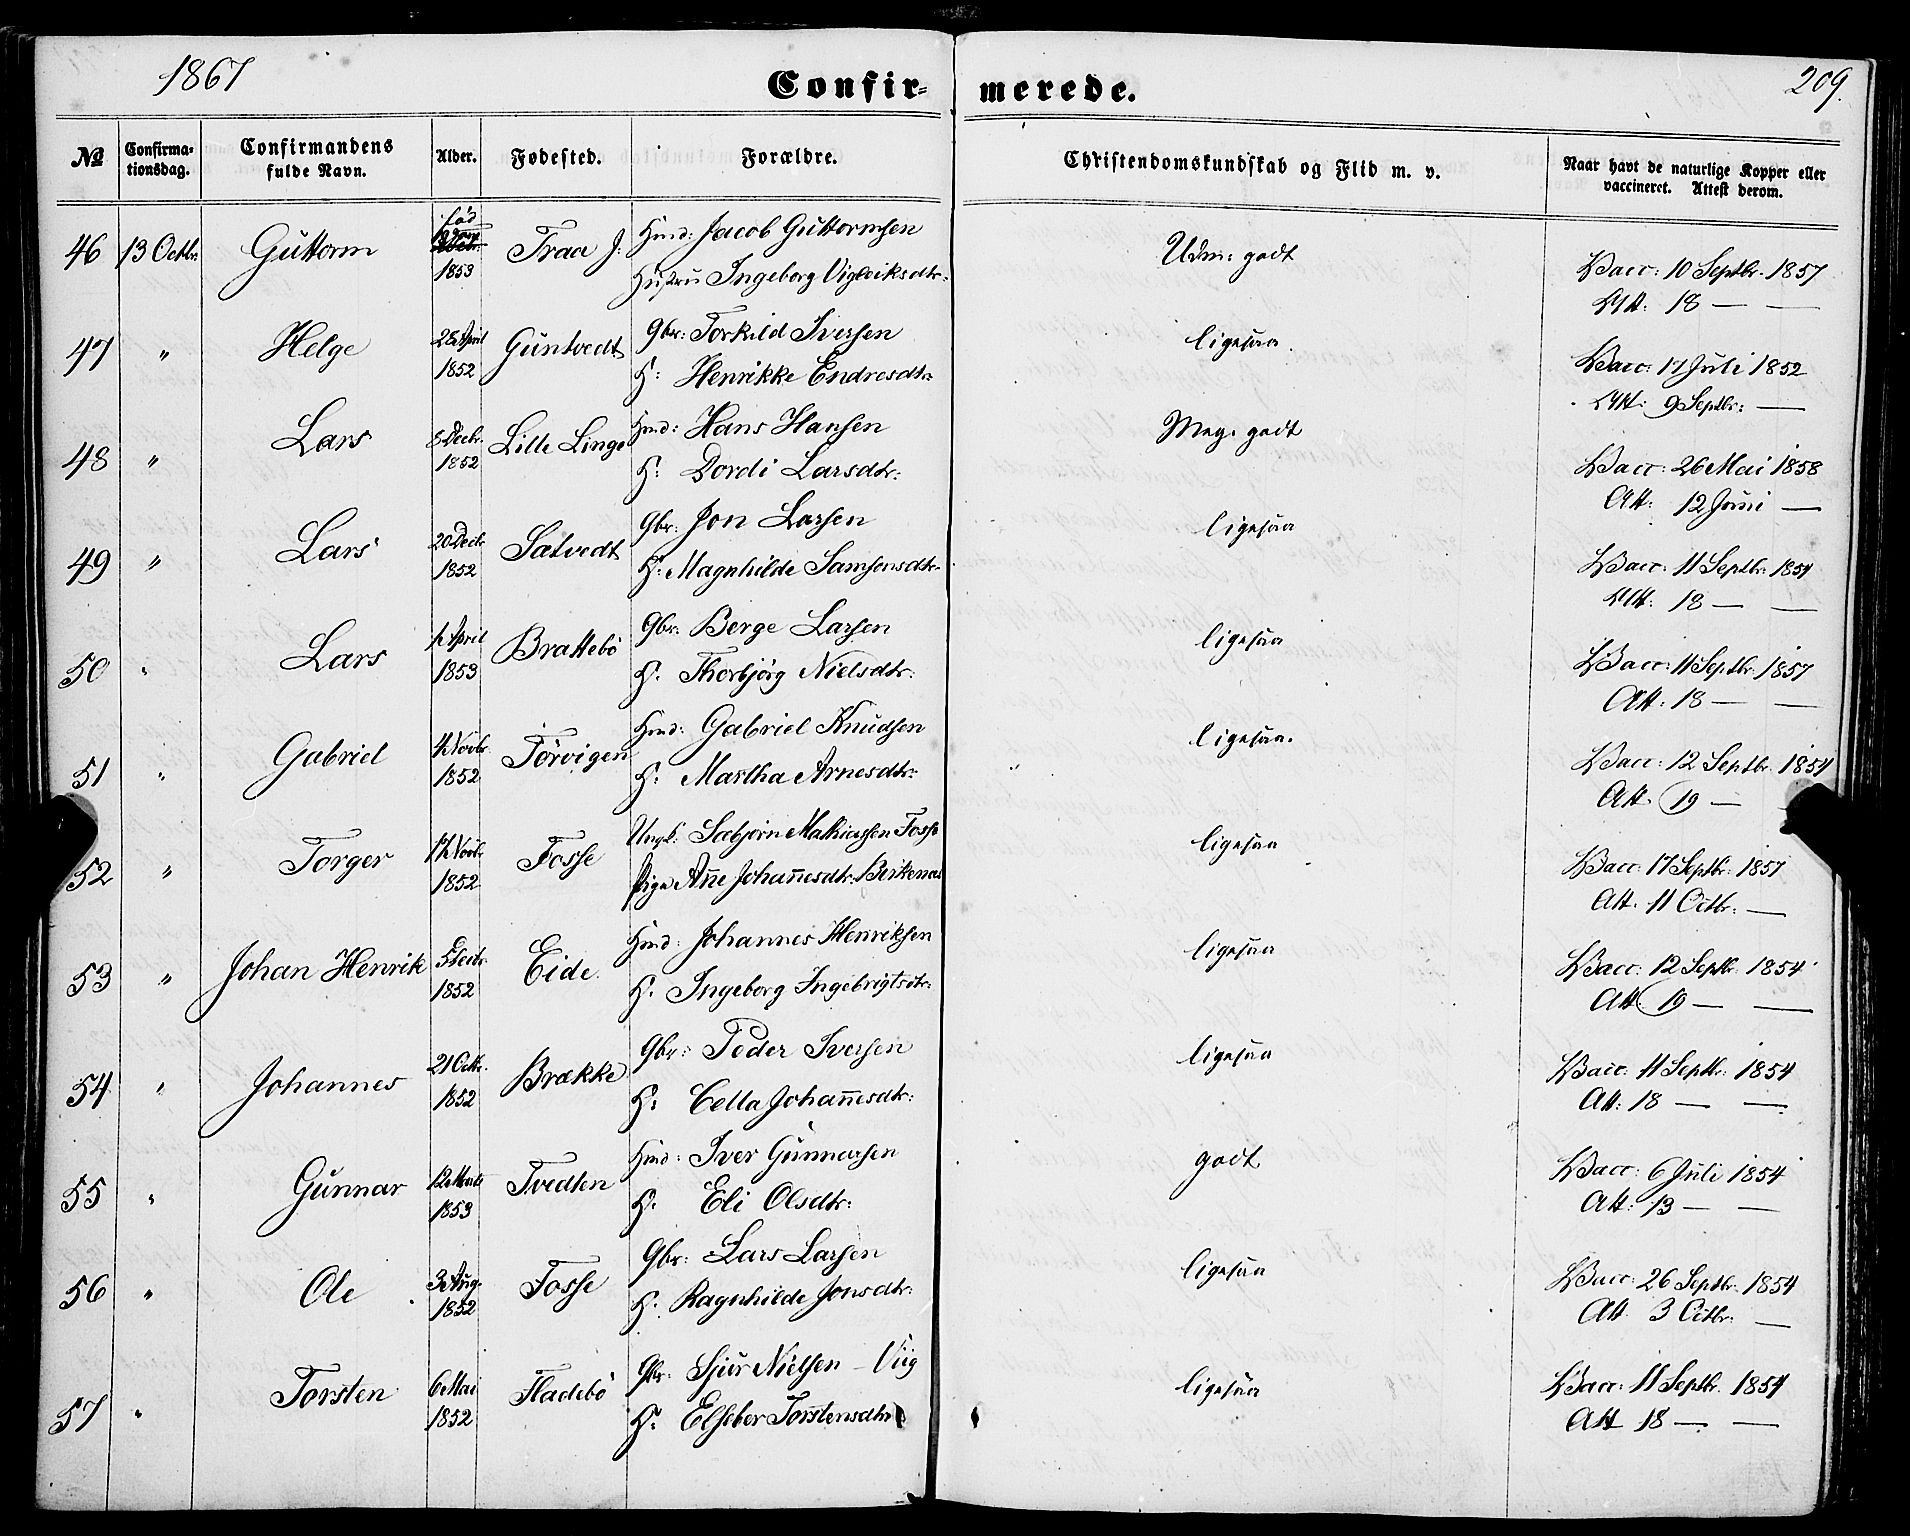 1867 Confir- merede. 209.
№ Confirma-tionsdag. Confirmandens fulde Navn. Alder. Fødested. Forældre. Christendomskundskab og Flid m. v. Naar havt de naturlige Kopper eller vaccineret. Attest derom.
46 13 Octbr. Guttorm fød 1853 Traa J. Hmd: Jacob Guttormsen Udm: godt Vacc: 10 Septbr. 1857
Hustru Ingeborg Vigleiksdtr: Att: 18 — —
47 " Helge 28 April 1852 Guntvedt Gbr: Torkild Iversen ligesaa Vacc: 17 Juli 1852
H: Henrikke Endresdtr: Att: 9 Septbr: —
48 " Lars 8 Decbr. 1852 Lille Linge Hmd: Hans Hansen Meg. godt Vacc: 26 Mai 1858
H: Dordi Larsdtr: Att: 12 Juni —
49 " Lars 20 Decbr 1852 Sætvedt Gbr: Jon Larsen ligesaa Vacc: 11 Septbr: 1854
H: Magnhilde Samsonsdtr. Att: 18 — —
50 " Lars April 1853 Brattebö Gbr: Berge Larsen ligesaa Vacc: 11 Septbr. 1857
H. Thorbjörg Nielsdtr: Att: 18 — —
51 " Gabriel 4 Novbr. 1852 Törvigen Hmd: Gabriel Knudsen ligesaa. Vacc: 12 Septbr. 1854
H: Martha Arnesdtr: Att. 19 —
52 " Torger Novbr. 1852 Fosse Ungk: Sæbjørn Mathiassen Fosse ligesaa Vacc: 17 Septbr: 1857
Pige Añe Johañesdtr. Birkenæs Att. 11 Octbr: —
53 " Johan Henrik 5 Decbr. 1852 Eide. Hmd: Johannes Henriksen ligesaa Vacc: 12 Septbr. 1854
H. Ingeborg Ingebrigtsdtr: Att. 19 — —
54 " Johannes 21 Octbr. 1852 Brække Gbr: Peder Iversen ligesaa Vacc: 11 Septbr: 1854
H: Cella Johañesdtr: Att: 18 — —
55 " Gunnar 12 Marts 1853 Tvedten Hmd: Iver Gunnarsen godt Vacc: 6 Juli 1854
H. Eli Olsdtr: Att: 13 — —
56 " Ole 3 Aug. 1852 Fosse Gbr: Lars Larsen ligesaa Vacc: 26 Septbr. 1854
H. Ragnhilde Jonsdtr: Att. 3 Octbr: —
57 " Torsten 6 Mai 1852 Fladebö Gbr. Sjur Nielsen – Viig ligesaa Vacc: 11 Septbr. 1854
H: Elseber Torstensdtr Att 18 — —